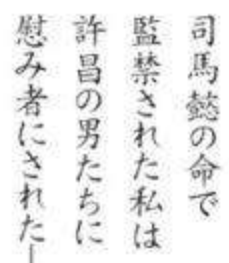 司馬懿の命で
監禁された私は
許昌の男たちに
慰み者にされた─